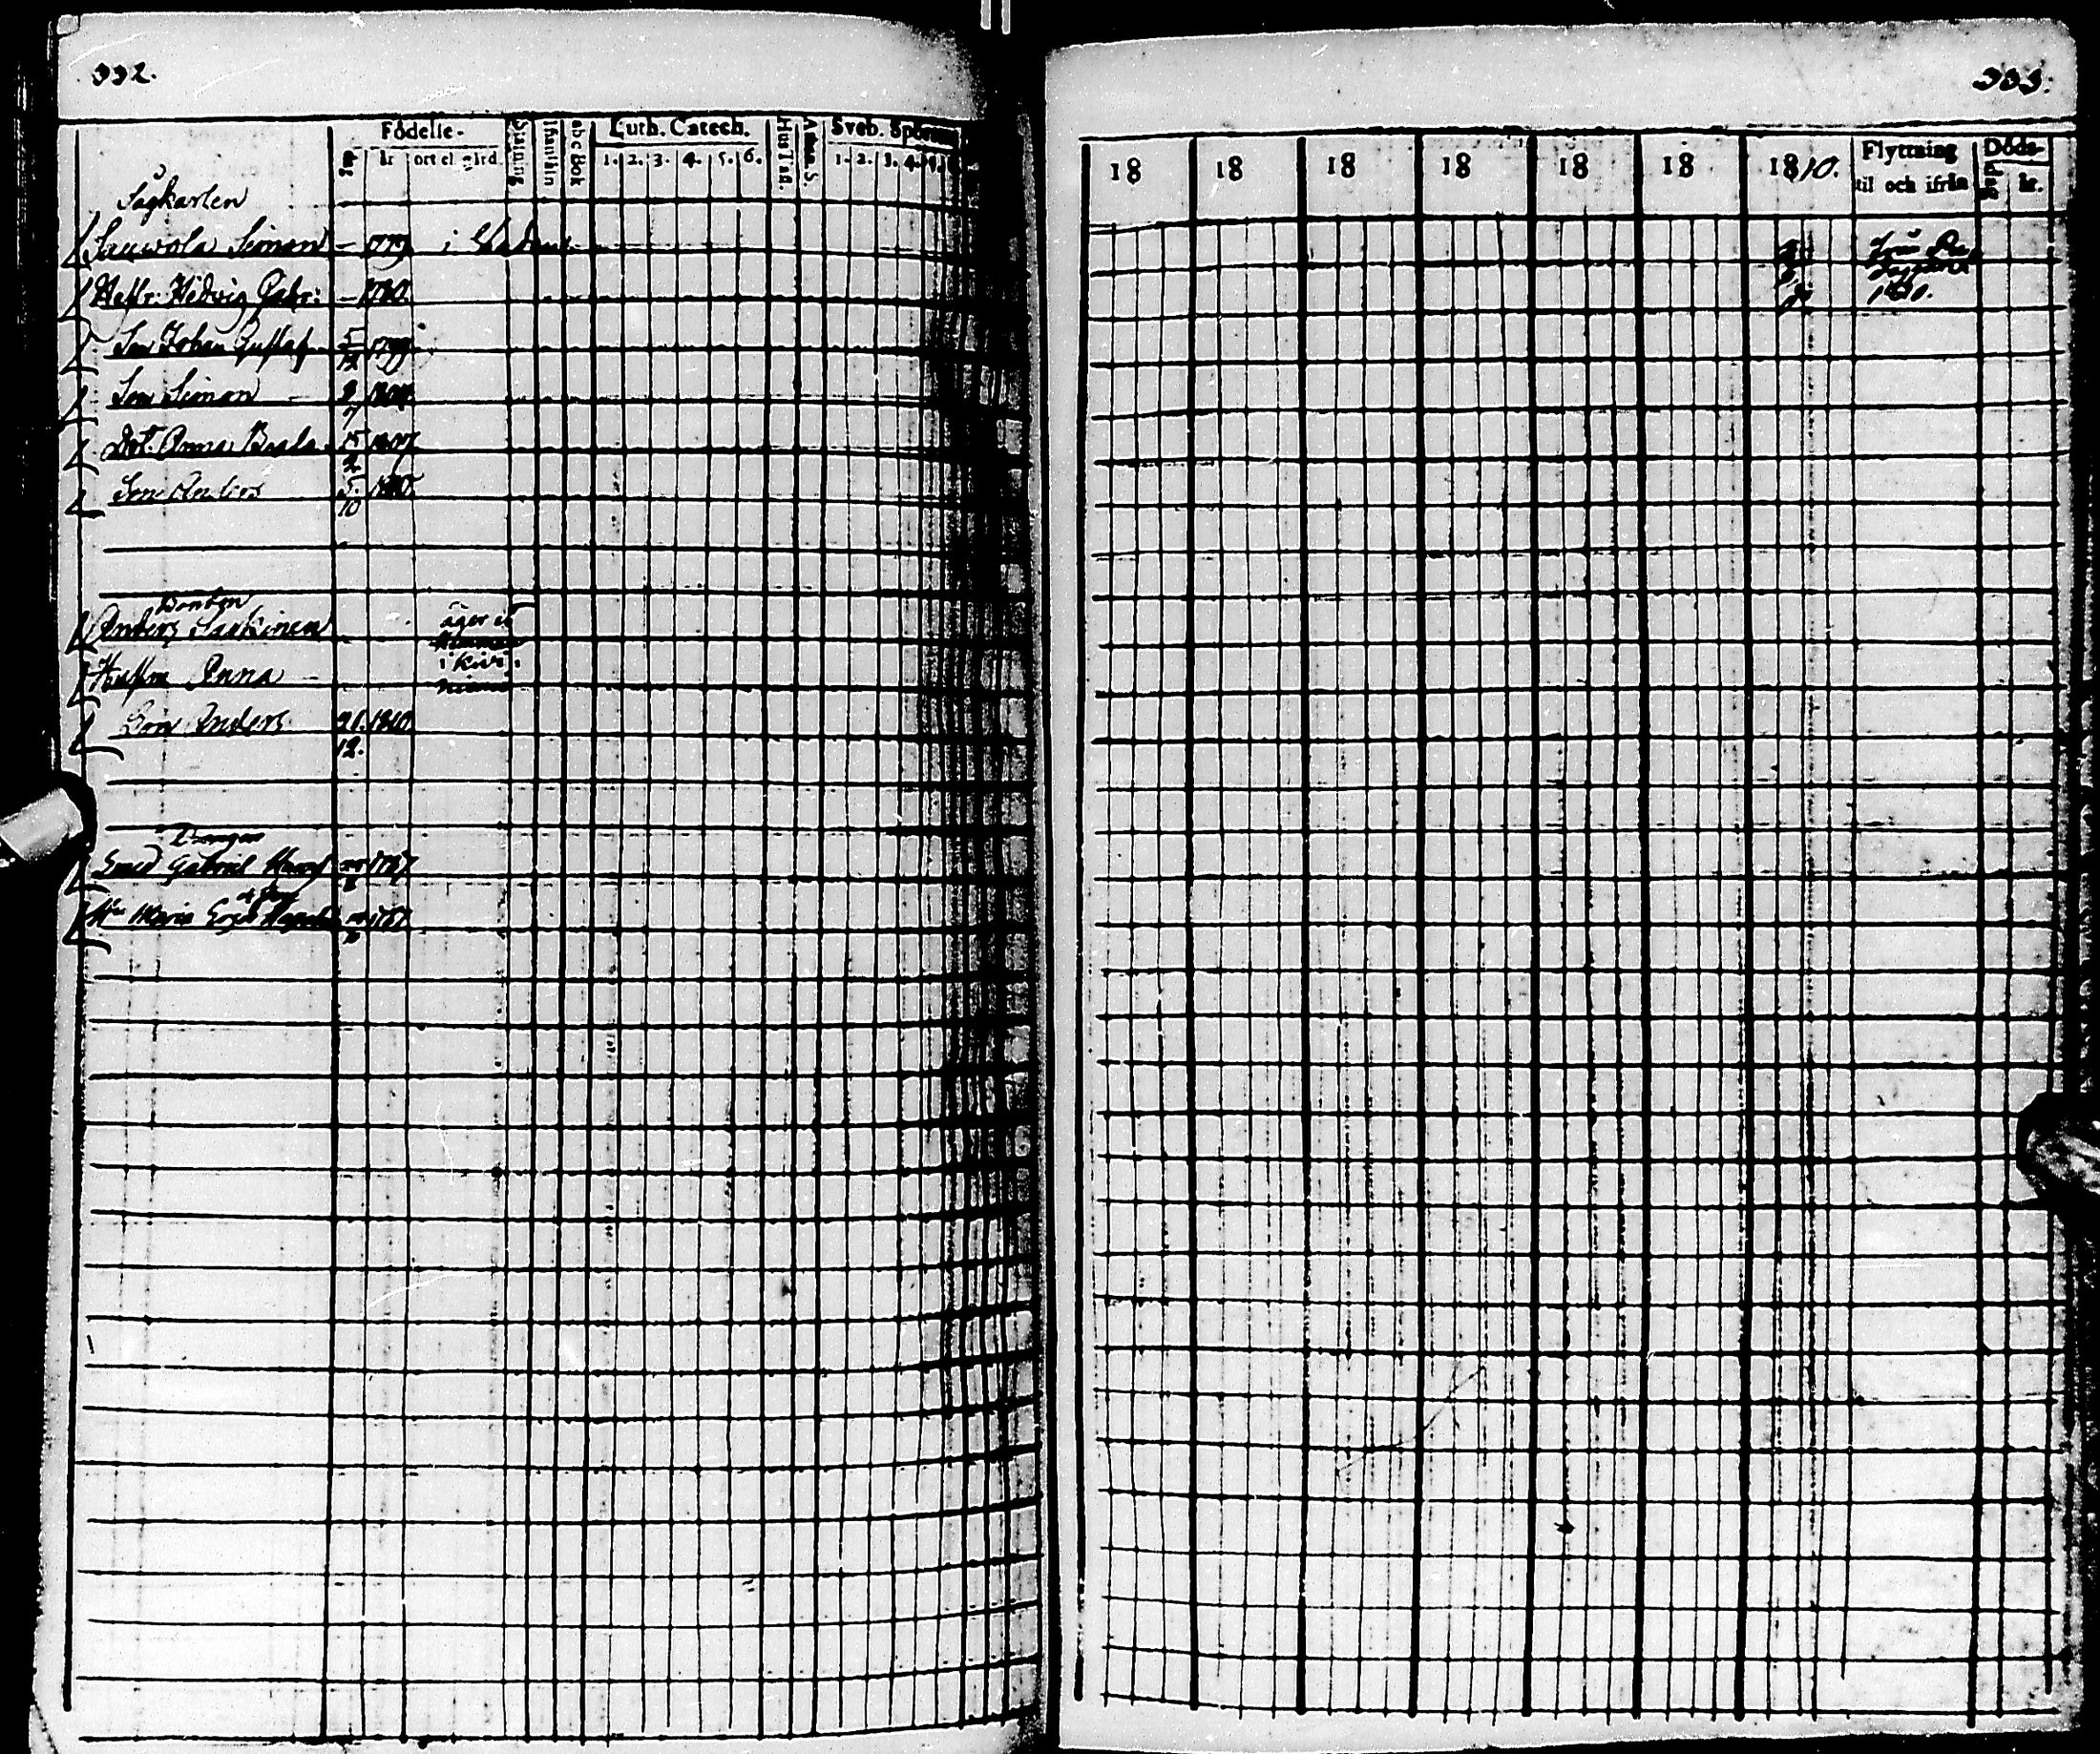 332.
Födelse-
år ort el. gård.
Stafning
Innanläsn
abc Bok
Luth. Catech.
1. 2. 3. 4. 5. 6.
Hus Tafl.
Athan. S.
Sveb. Spörsm
1. 2. 3. 4. 5.
Sågkarlen
Sauwola Simon - 1779. i Staden
Hustr. Hedvig Gabr: - 1780.
Son Johan Gustaf 5/12 1799.
Son Simon 2/7
Dot. Anna Beata 15/2 1807.
Son Anders 5/10 1810.
Bonden
Anders Saukinen äger et
Hemman
i Kivi
niemi
Hustru Anna
Son Anders 21/12. 1810.
Smed Gabriel 1787.
Maria 1787.
333.
18 18 18 18 18 18 1810.
Flyttning
til och ifrån
Döds-
dag år.
från
1810.